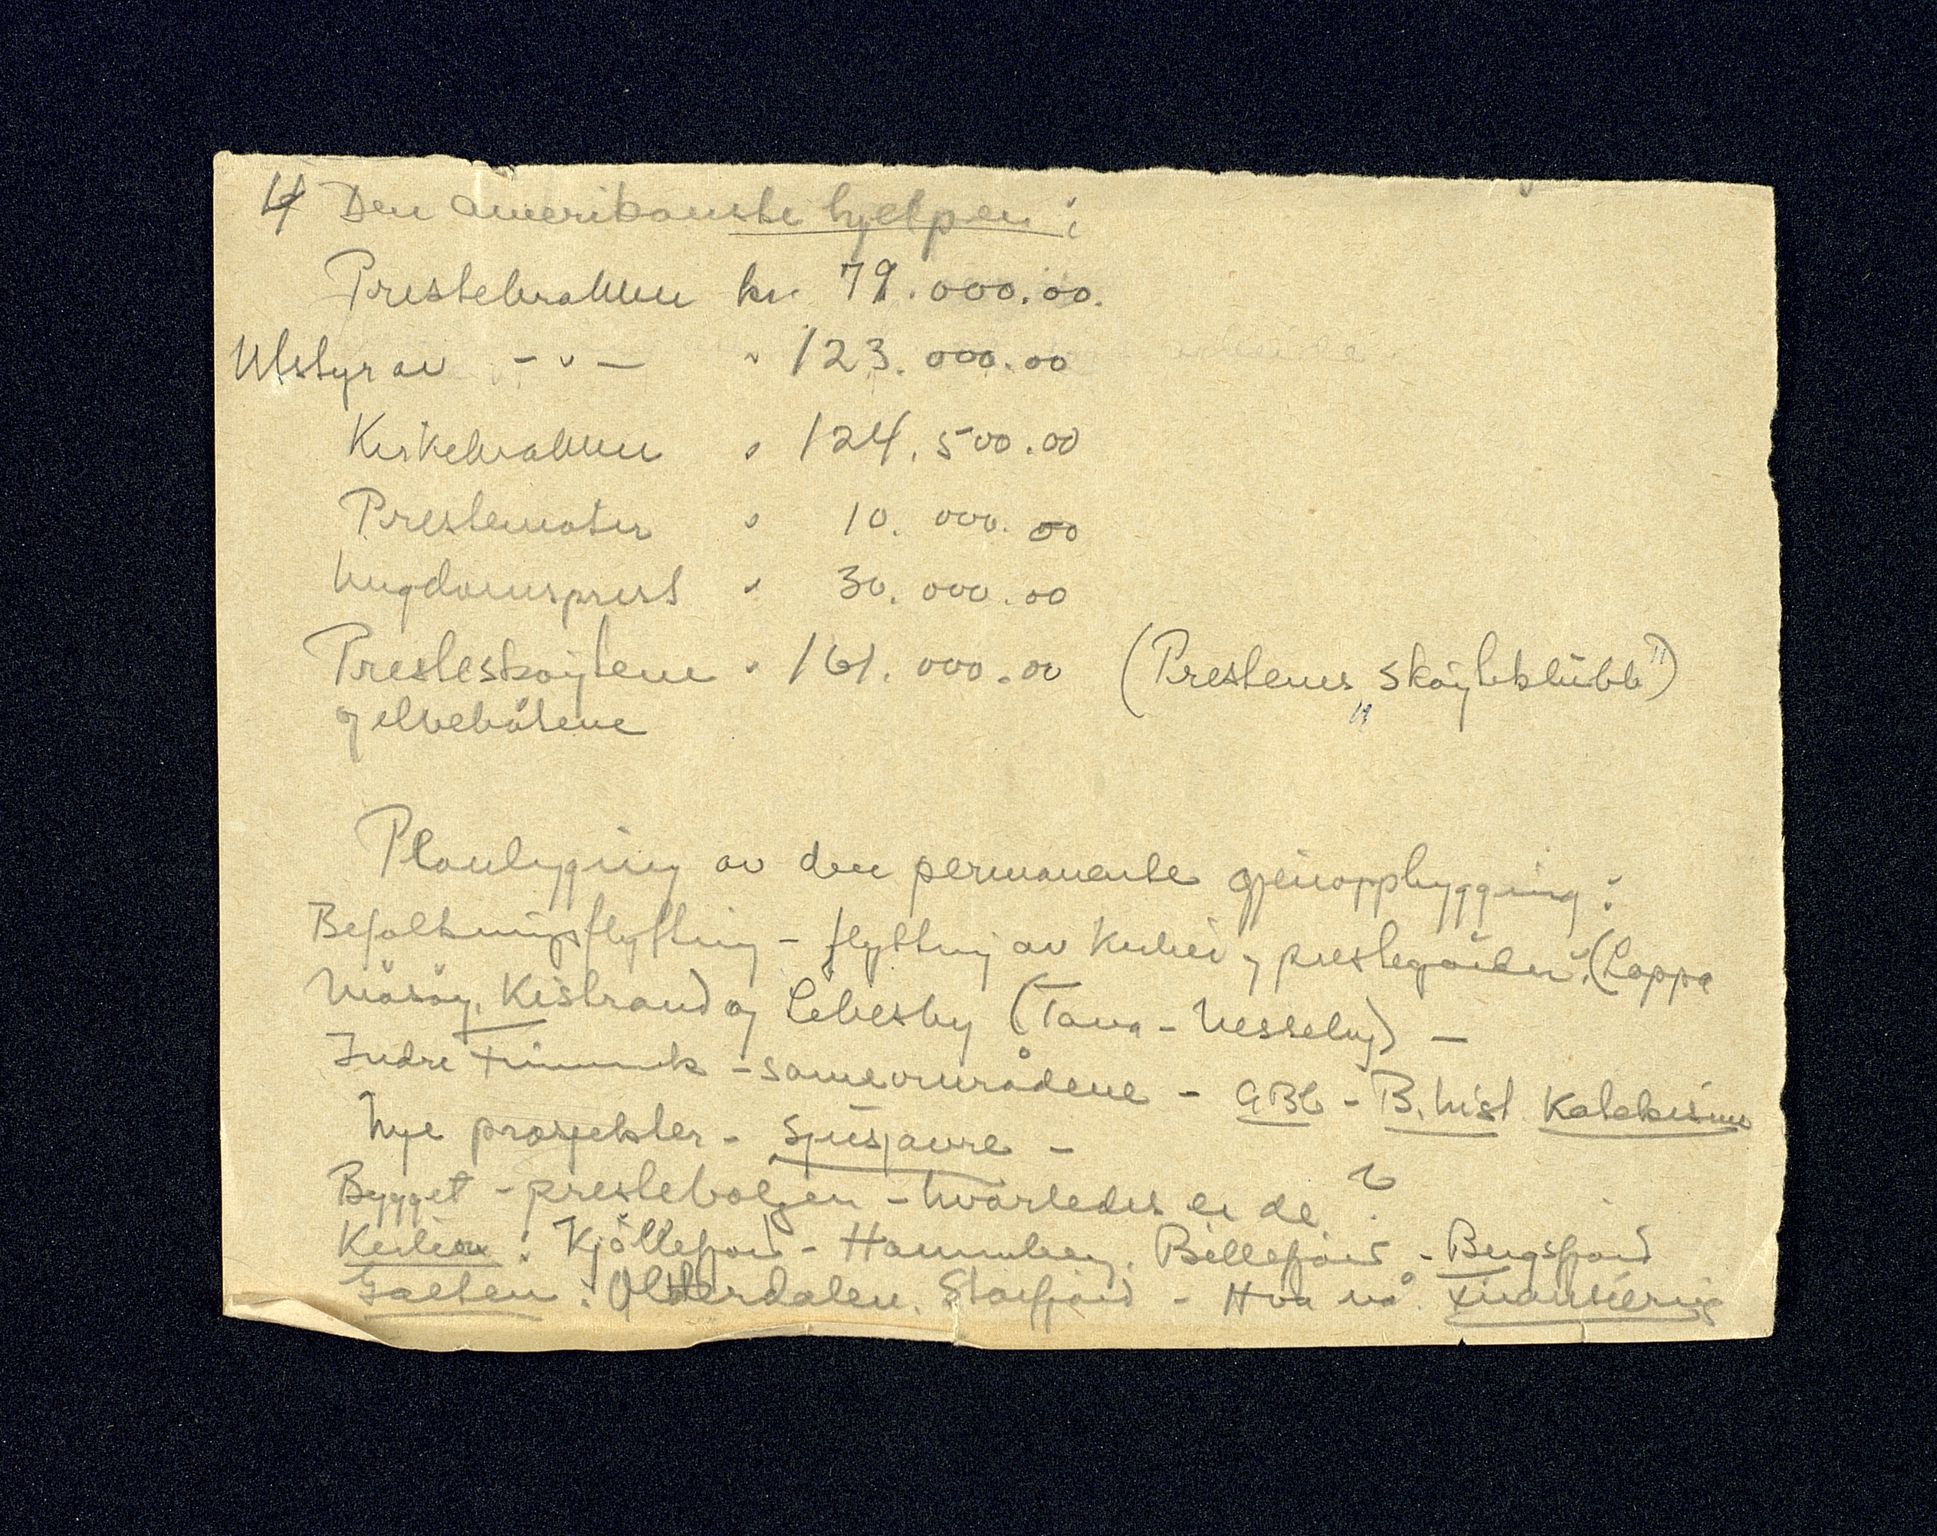 4 Den amerikanske hjelpen :
Prestebrakker kr. 79.000.00.
Utstyr av - " - " 123.000.00
Kirkebrakker " 124.500.00
Prestemøter " 10.000.00
Ungdomsprest " 30.000.00
Presteskøytene " 161.000.00 (Prestenes „skøyteklubb")
og elvebåtene
Planlegging av den permanente gjenoppbygging :
Befolkningsflytting - flytting av kirker og prestegårder. (Loppa
Måsøy, Kistrand og Lebesby (Tana - Nesseby) -
Indre Finnmark - sameområdene - B. hist Katekisme
Nye prosjekter - Sjusjavre -
Bygget - presteboliger - hvorledes er de ?
Kirker : Kjøllefjord - Hamnberg, Billefjord - Bugøfjord
Olderdalen. Storfjord - Hva nå. Finansiering